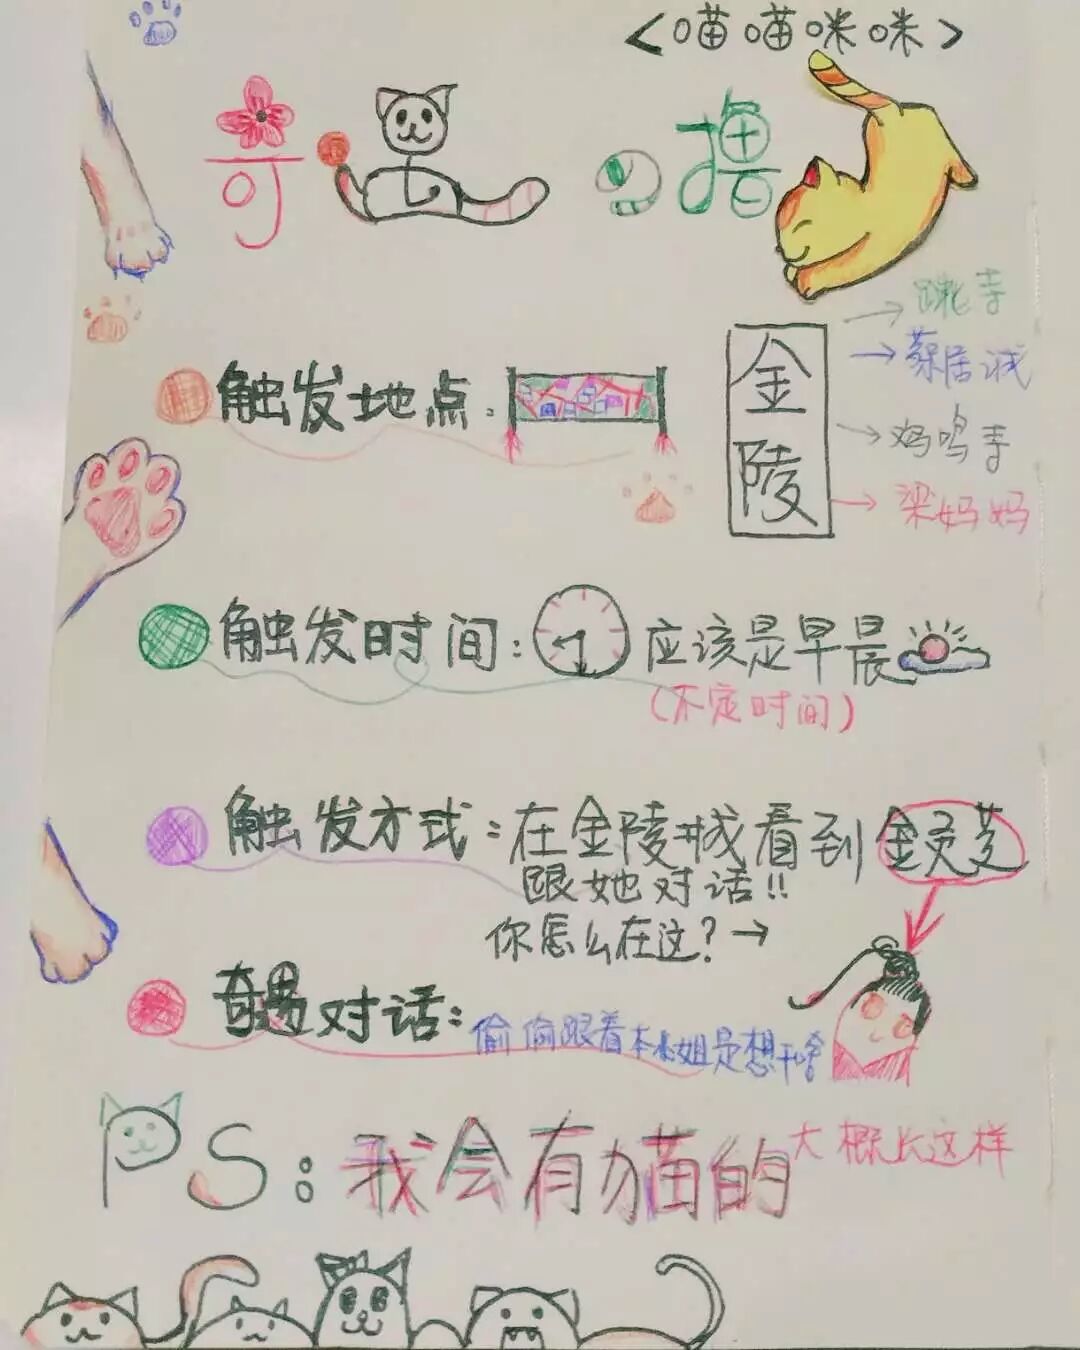 <喵喵咪咪>
奇遇の撸猫
触发地点:
金陵
→跳寺
→蔡居诚
→鸡鸣寺
→梁妈妈
触发时间:
应该是早晨
(不定时间)
触发方式:在金陵城看到金灵芝
跟她对话!!
你怎么在这?→
奇遇对话:
偷偷跟着本小姐是想干啥
PS:我会有猫的
大概长这样